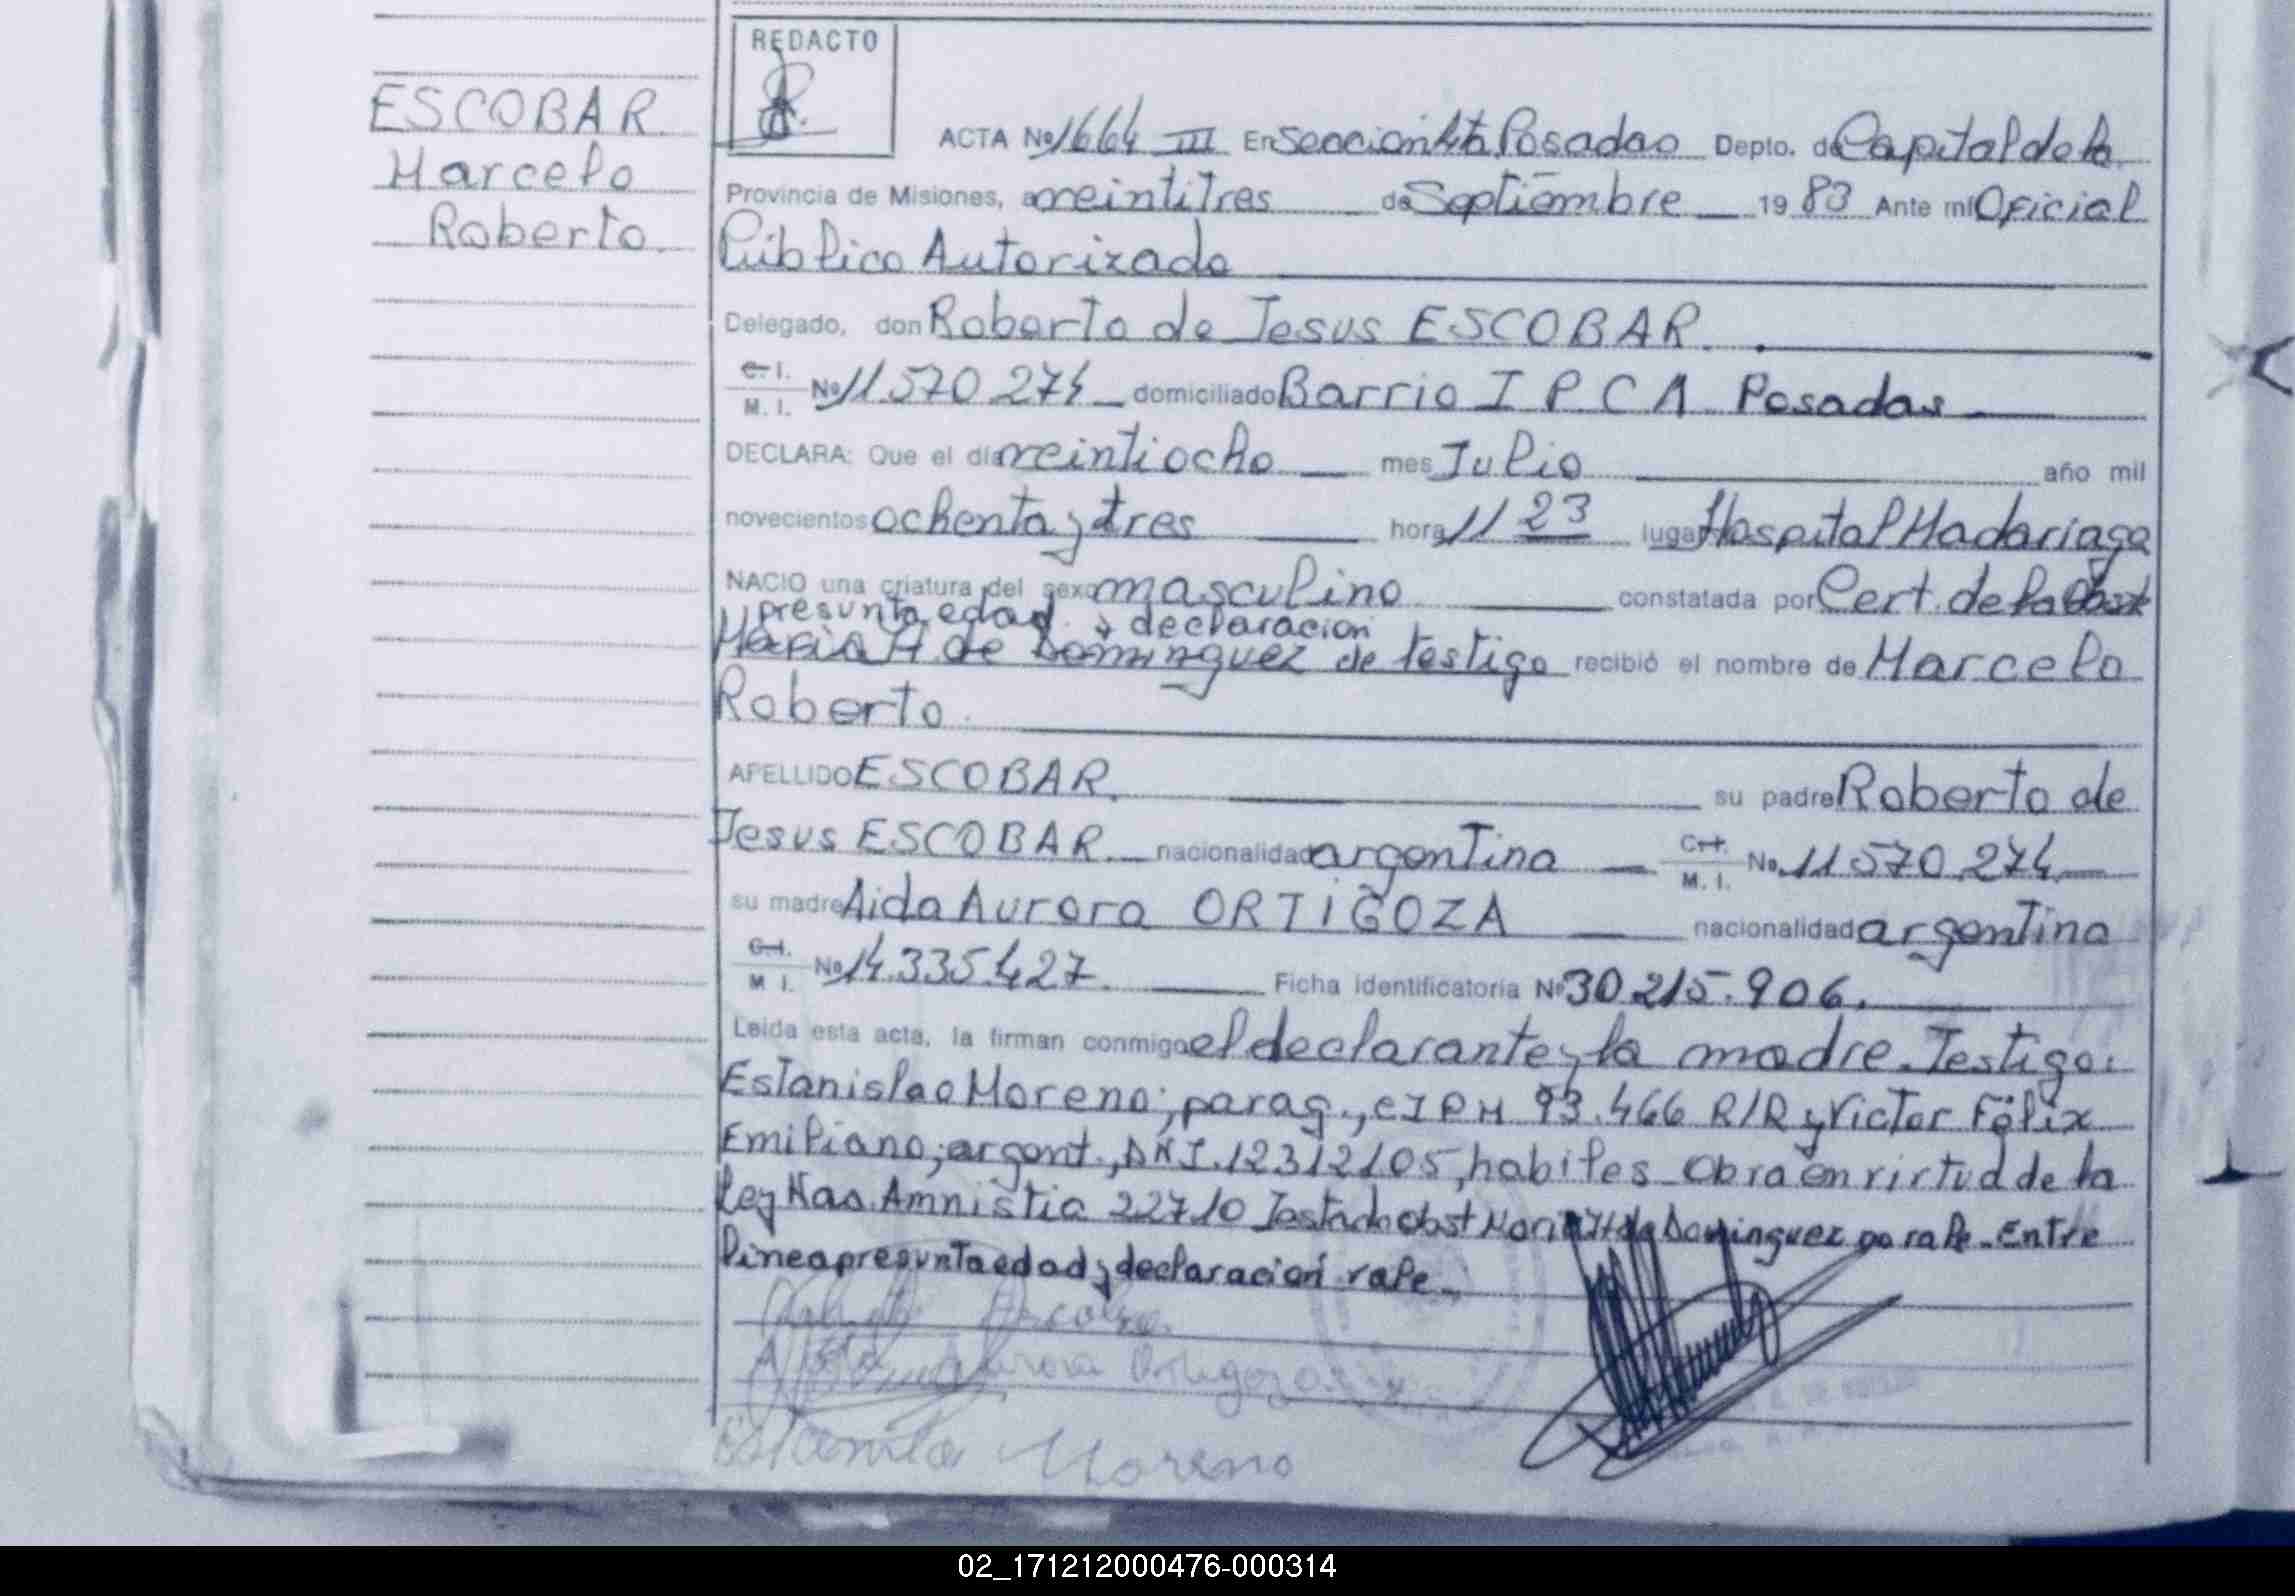 REDACTO
ESCOBAR
Marcelo
Roberto.
ACTA Nº 1664 III En Seccion 4ta Posadas Depto. de Capital de la
Provincia de Misiones, a veintitres de Septiembre 19 83 Ante mi Oficial
Público Autorizado
Delegado, don Roberto de Jesus ESCOBAR.
C. I.
M. I. Nº 11.570.274 domiciliado Barrio I P C A Posadas
DECLARA: Que el día veintiocho mes Julio año mil
novecientos ochenta y tres hora 11 23 lugar Hospital Madariaga
NACIO una criatura del sexo masculino constatada por Cert. de la Obst
presunta edad y declaracion
Maria H. de Dominguez de testigo recibió el nombre de Marcelo
Roberto.
APELLIDO ESCOBAR. su padre Roberto de
Jesus ESCOBAR. nacionalidad argentina C. I.
M. I. No. 11.570.274
su madre Aida Aurora ORTIGOZA nacionalidad argentina
C. I.
M. I. Nº 14.335.427. Ficha identificatoria Nº 30.215.906.
Leida esta acta, la firman conmigo el declarante y la madre. Testigo:
Estanislao Moreno; parag., CIPM 93.466 R/R y Victor Félix
Emiliano; argent., DNI. 12312105, habiles. Obra en virtud de la
ley Nac. Amnistia 22710 Testado obst Maria H de Dominguez no vale. Entre
linea presunta edad y declaración vale.
Roberto Escobar
Aida Aurora Ortigoza
Estanislao Moreno
02_171212000476-000314